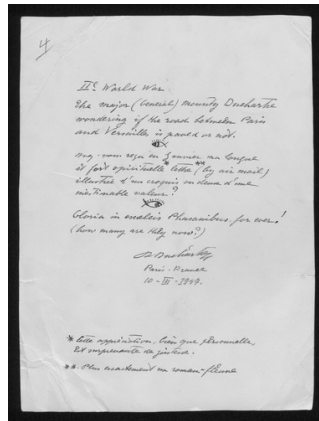 4
IIe World War.
The major (General) mounty Duchartre
wondering if the road between Paris
and Versailles is paved or not.
avez-vous reçu en Janvier ma longue
et fort spirituelle* lettre** (by air mail)
illustrée d'un croquis en d'une
inestimable valeur?
Gloria in excelsis for ever!
(how many are they now?)
Duchartre
Paris. France
10 - III - 1949.
* Cette appréciation, bien que personnelle,
est surprenante de justesse.
** Plus exactement un roman-fleuve